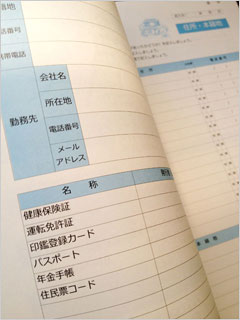 電話番号
携帯電話
勤務先
会社名
所在地
電話番号
メール
アドレス
名 称
健康保険証
運転免許証
印鑑登録カード
パスポート
年金手帳
住民票コード
住所・本籍地